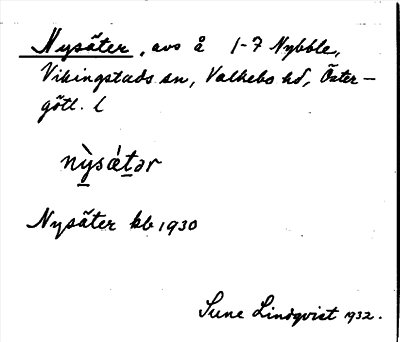 Nysäter, avs å 1-7 Nybble,
Vikingstads sn, Valkebo hd, Öster-
götl. l
nỳsátər
Nysäter kb 1930
Sune Lindqvist 1932.